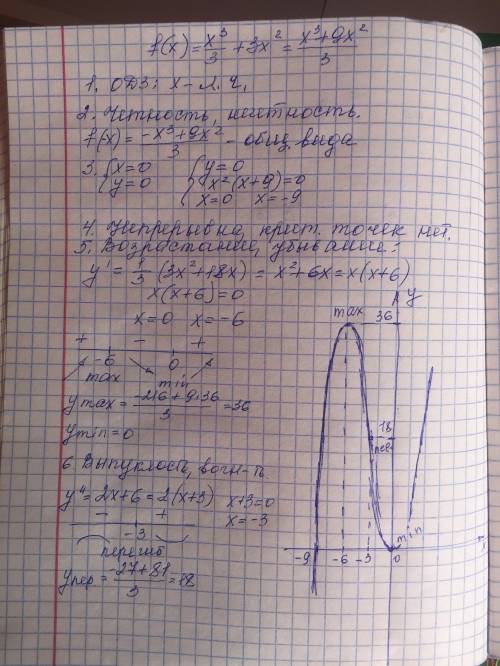 f(x) = x³/3 + 3x² = (x³+9x²)/3
1. ОДЗ: x - л. ч.
2. Четность, нечетность.
f(x) = (-x³+9x²)/3 - общ. вида
3. { x=0 { y=0
{ y=0 { x²(x+9)=0
x=0 x=-9
4. Непрерывна, крит. точек нет.
5. Возрастание, убывание:
y' = 1/3 (3x²+18x) = x²+6x = x(x+6)
x(x+6)=0
x=0 x=-6
+ - +
-6 0
max min
y max = (-216+9·36)/3 = 36
y min = 0
6. Выпуклость, вогн-ть.
y" = 2x+6 = 2(x+3) x+3=0
x=-3
- +
-3
перегиб
y пер = (-27+81)/3 = 18
y
max 36
18
пер
min
-9 -6 -3 0
x